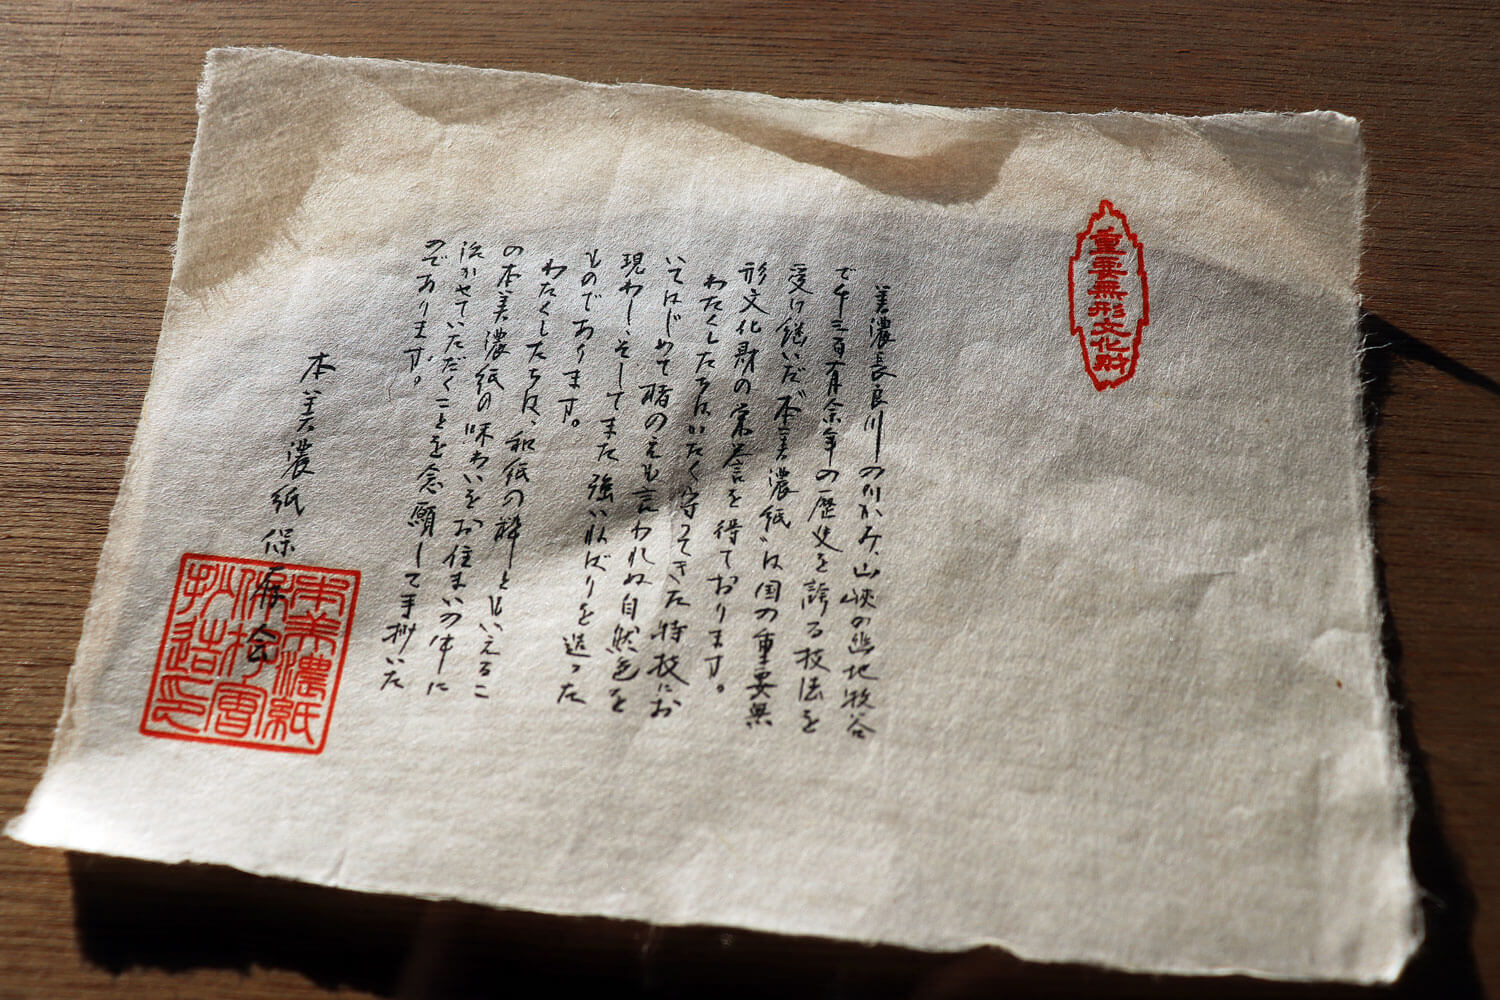 重要無形文化財
美濃長良川の川かみ、山峡の幽地牧谷
で千三百有余年の歴史を誇る技法を
受け継いだ“本美濃紙”は国の重要無
形文化財の栄誉を得ております。
わたくしたちはかたく守ってきた特技にお
いてはじめて楮のえも言われぬ自然色を
現わし、そしてまた強いねばりを造った
ものであります。
わたくしたちは、和紙の粋ともいえるこ
の本美濃紙の味わいをお住まいの中に
活かせていただくことを念願して手抄いた
のであります。
本美濃紙保存会
本美濃紙
保存會
抄造之印